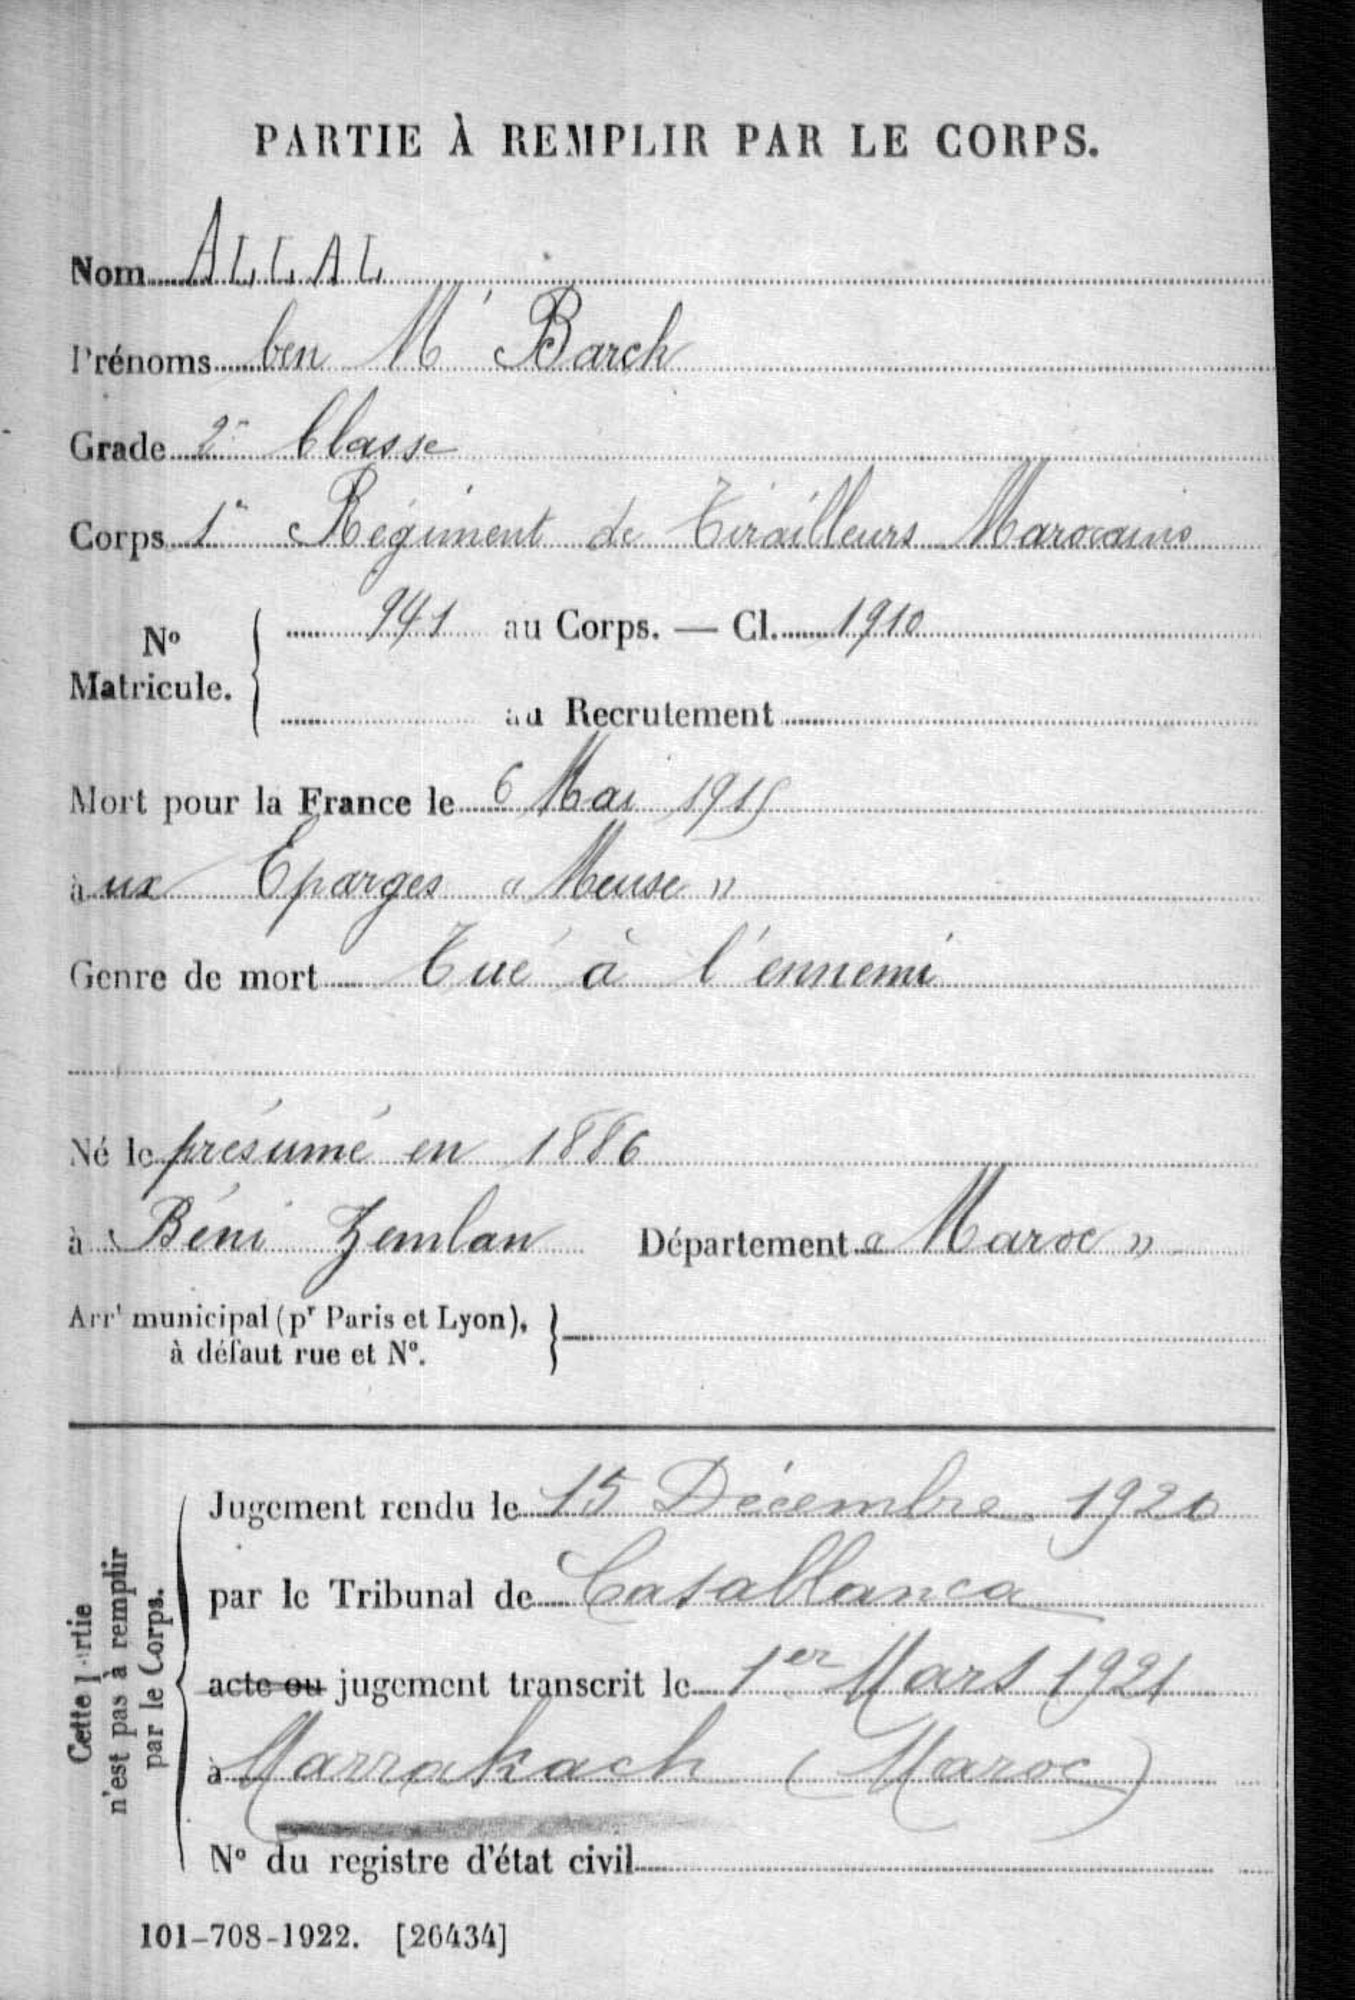 PARTIE À REMPLIR PAR LE CORPS.
Nom ALLAL
Prénoms ben M' Barck
Grade 2e Classe
Corps 1er Régiment de Tirailleurs Marocains
No Matricule. 941 au Corps. — Cl. 1910
au Recrutement
Mort pour la France le 6 Mai 1915
à ux Eparges « Meuse »
Genre de mort Tué à l'ennemi
Né le présumé en 1886
à Béni Zemlan Département « Maroc »
Arrt municipal (pr Paris et Lyon),
à défaut rue et No.
Cette partie
n'est pas à remplir
par le Corps.
Jugement rendu le 15 Décembre 1920
par le Tribunal de Casablanca
acte ou jugement transcrit le 1er Mars 1921
à Marrakach (Maroc)
No du registre d'état civil
101-708-1922. [26434]